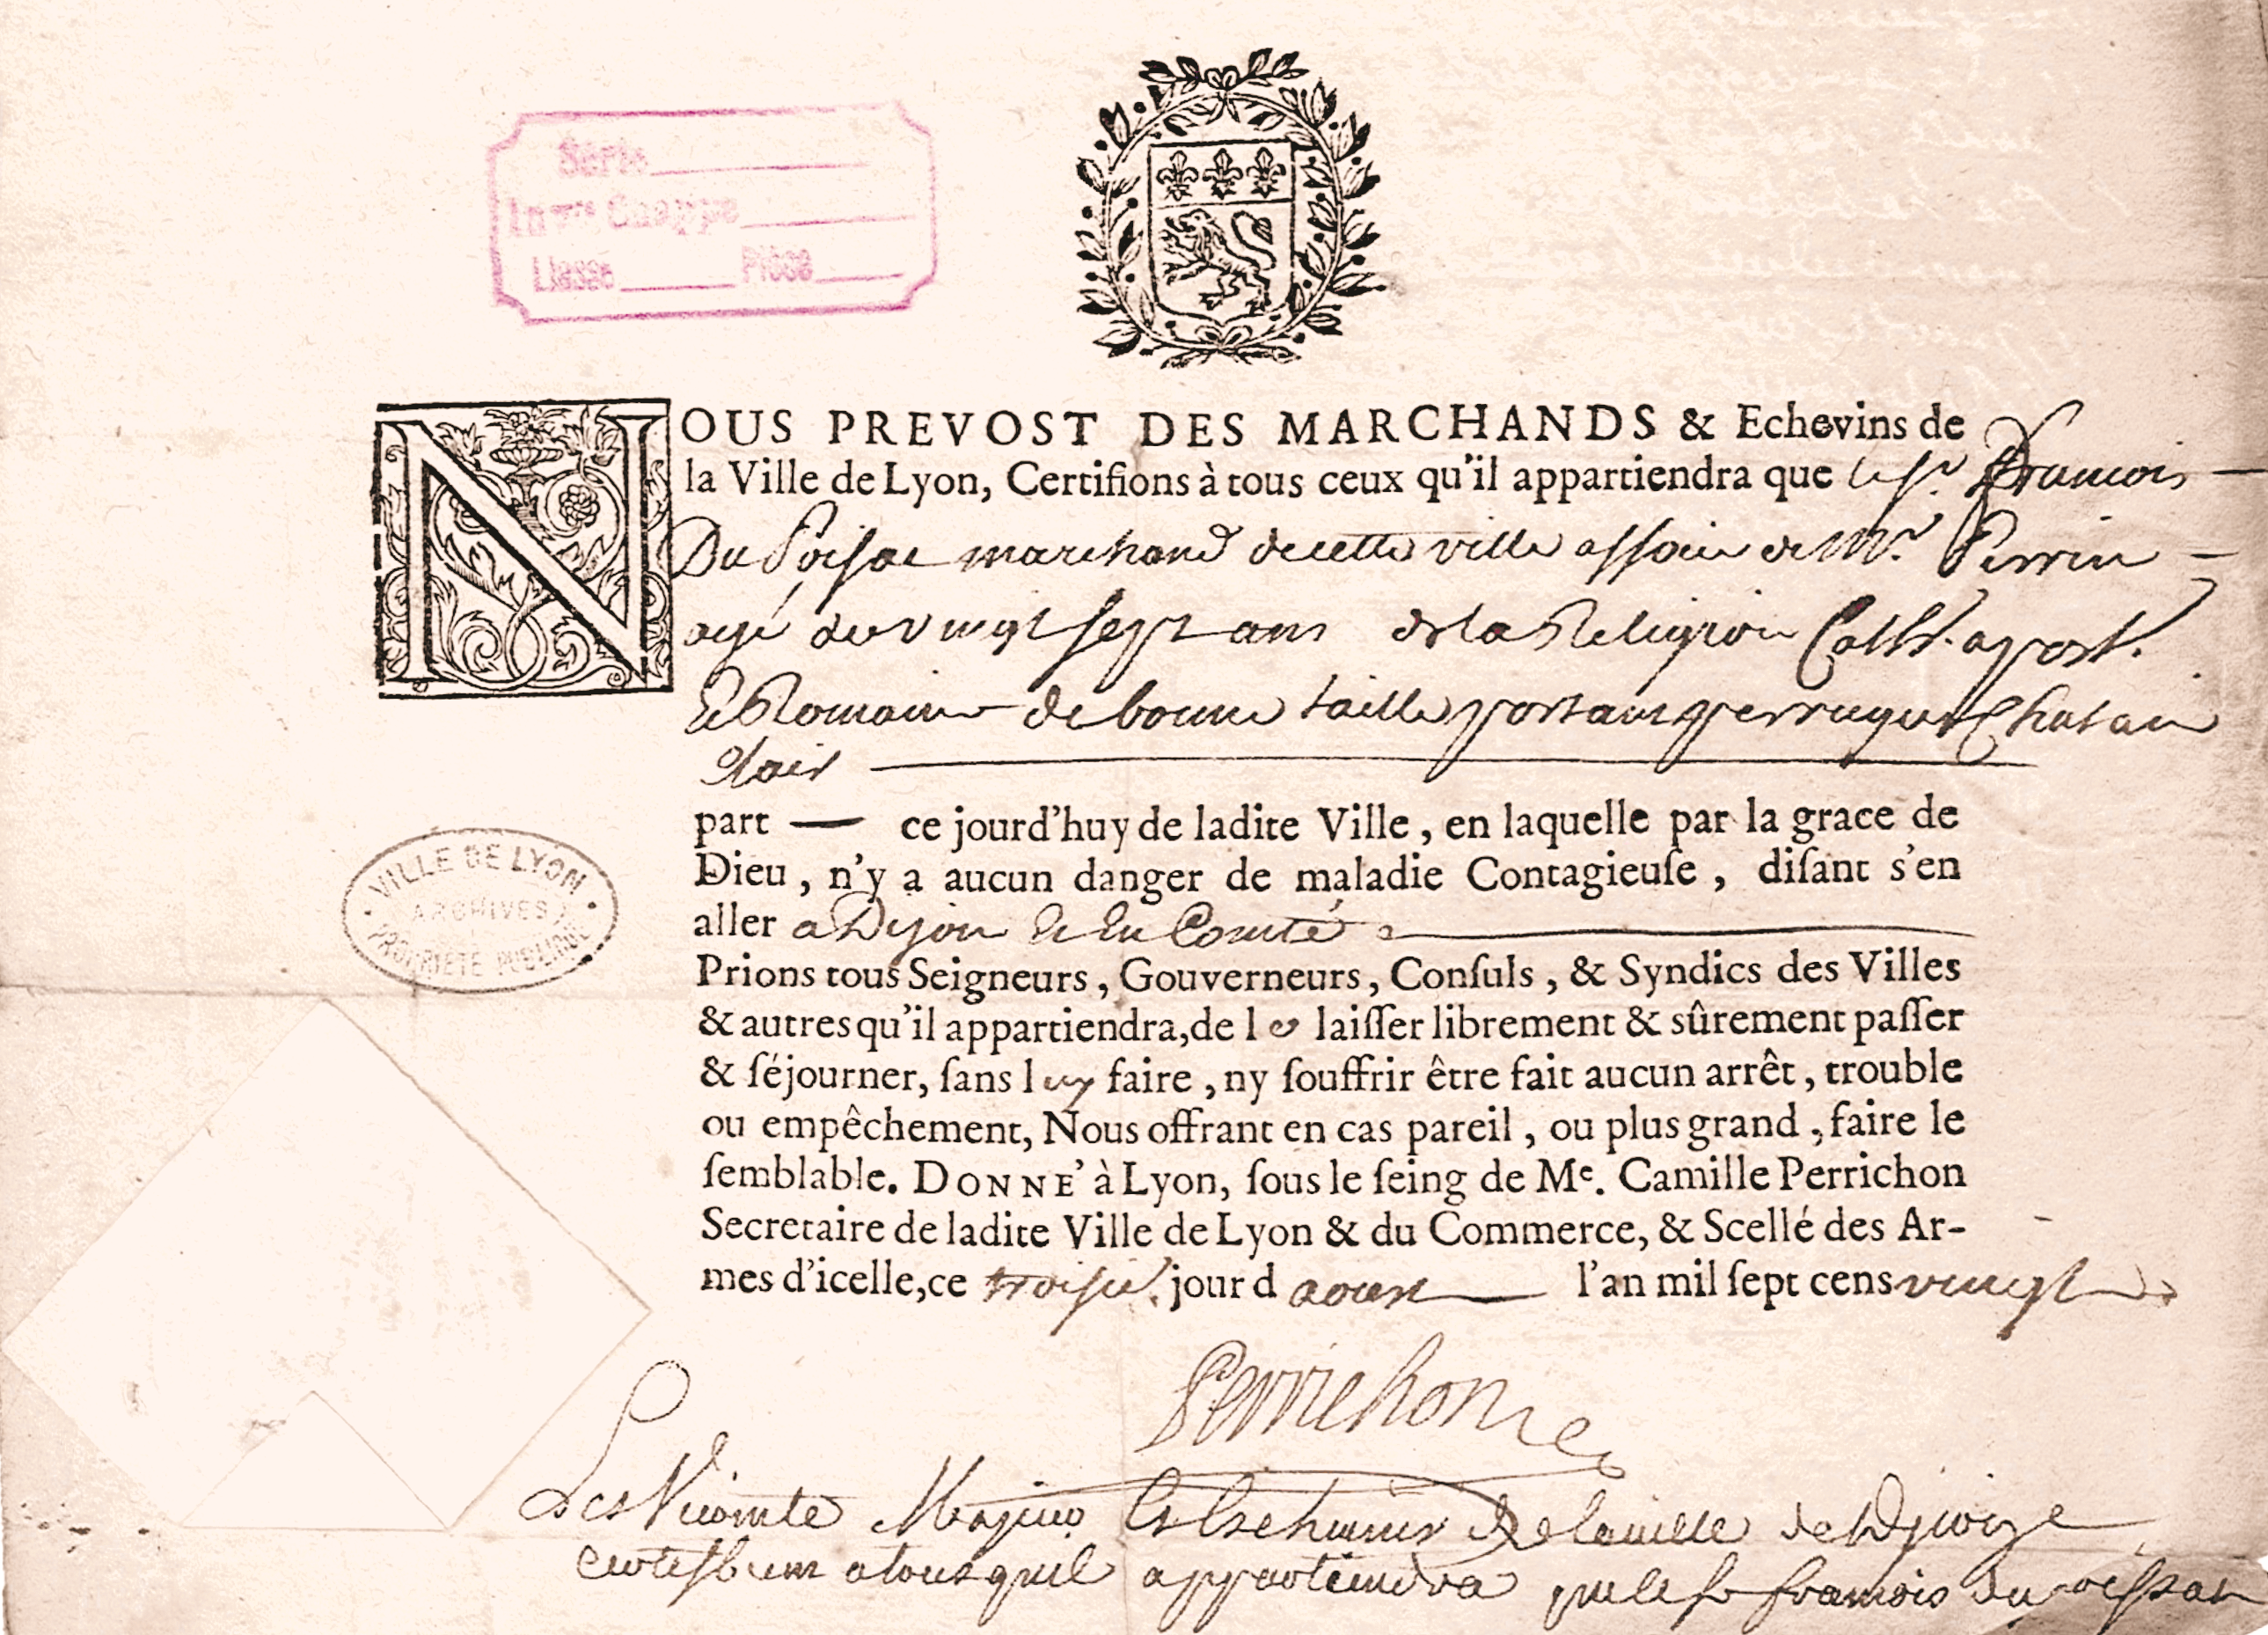 Série
Inv.re Chappe
Liasse Pièce
NOUS PREVOST DES MARCHANDS & Echevins de
la Ville de Lyon, Certifions à tous ceux qu'il appartiendra que le sr. Francois
Du Poisat marchand de cette ville associe de Mr. Perrin
agé de vingt sept ans de la Religion Cath. apost.
& Romaine de bonne taille portant perruque Chatain
Clair
part — ce jourd'huy de ladite Ville, en laquelle par la grace de
Dieu, n'y a aucun danger de maladie Contagieuſe, diſant s'en
aller a Dijon & En Comté
Prions tous Seigneurs, Gouverneurs, Conſuls, & Syndics des Villes
& autres qu'il appartiendra, de le laiſſer librement & sûrement paſſer
& ſéjourner, ſans luy faire, ny ſouffrir être fait aucun arrêt, trouble
ou empêchement, Nous offrant en cas pareil, ou plus grand, faire le
ſemblable. DONNE' à Lyon, ſous le ſeing de Me. Camille Perrichon
Secretaire de ladite Ville de Lyon & du Commerce, & Scellé des Ar-
mes d'icelle, ce troisie. jour d aoust l'an mil ſept cens vingt
VILLE DE LYON
ARCHIVES
PROPRIETE PUBLIQUE
Perrichon
Les Vicomte Majeur & Eschevins de la ville de
a tous quil appartiendra que le sr francois du poissat